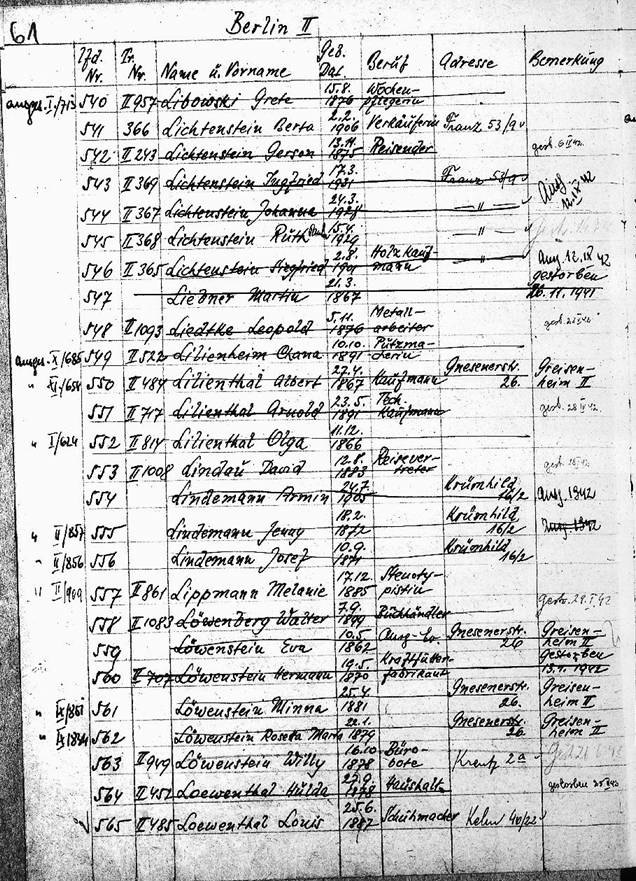 61 Berlin II
Lfd. Nr. Tr. Nr. Name u. Vorname Geb. Dat. Beruf Adresse Bemerkung
I/713 540 II 957 Libowski Grete 15.8. 1876 Wochenpflegerin
541 366 Lichtenstein Berta 2.2. 1906 Verkäuferin Franz 53/9
542 II 243 Lichtenstein Gerson 13.11. 1875 Reisender
543 II 369 Lichtenstein 17.3. 1931 Franz 53/9
544 II 367 Lichtenstein Johanna 24.3. 1928 -"-
545 II 368 Lichtenstein Ruth 15.4. 1929 -"-
546 II 365 Lichtenstein Siegfried 2.8. 1901 Holzkaufmann -"- 12.IX 42
547 Liedner Martin 21.3. 1867 gestorben 26.11.1941
548 II 1093 Liedtke Leopold 5.11. 1876 Metallarbeiter
X/685 549 II 522 Lilienheim Chana 10.10. 1891 Putzmacherin
" 550 II 484 Lilienthal Albert 27.4. 1867 Kaufmann Gnesenerstr. 26. Greisenheim II
551 II 717 Lilienthal Arnold 23.5. 1891 Tech. Kaufmann
" I/624 552 II 814 Lilienthal Olga 11.12. 1866
553 II 1008 Lindau David 12.8. 1883 Reisevertreter
554 Lindemann Armin 24.7. 1905 Krümhild 16/2 1942
" II/857 555 Lindemann Jenny 18.2. 1872 Krümhild 16/2 1942
" II/856 556 Lindemann Josef 10.9. 1871 Krümhild 16/2
" II/909 557 II 861 Lippmann Melanie 17.12. 1885 Stenotypistin
558 II 1083 Löwenberg Walter 7.9. 1899 Buchhändler
559 Löwenstein Eva 10.5. 1862 Gnesenerstr. 26 Greisenheim II
560 II 707 Löwenstein Hermann 19.5. 1870 Kraftfutterfabrikant gestorben 13.1.1942
" 561 Löwenstein Minna 25.4. 1881 Gnesenerstr. 26. Greisenheim II
" 562 Löwenstein Rosetta Marta 1879 Gnesenerstr. 26 Greisenheim II
563 II 949 Löwenstein Willy 16.10 1878 Bürobote 2a
564 II 452 Loewenthal Hulda 27.9. 1878 Haushalt gestorben
565 II 485 Loewenthal Louis 25.6. 1887 Schuhmacher 40/22